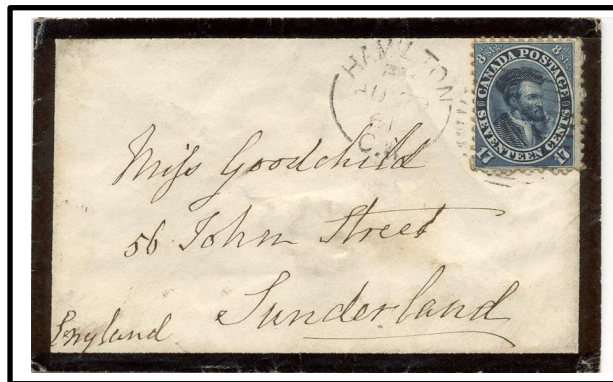 HAMILTON
C.W.
8 stg. CANADA POSTAGE 8 stg.
17 SEVENTEEN CENTS 17
Miss Goodchild
56 John Street
Sunderland
England